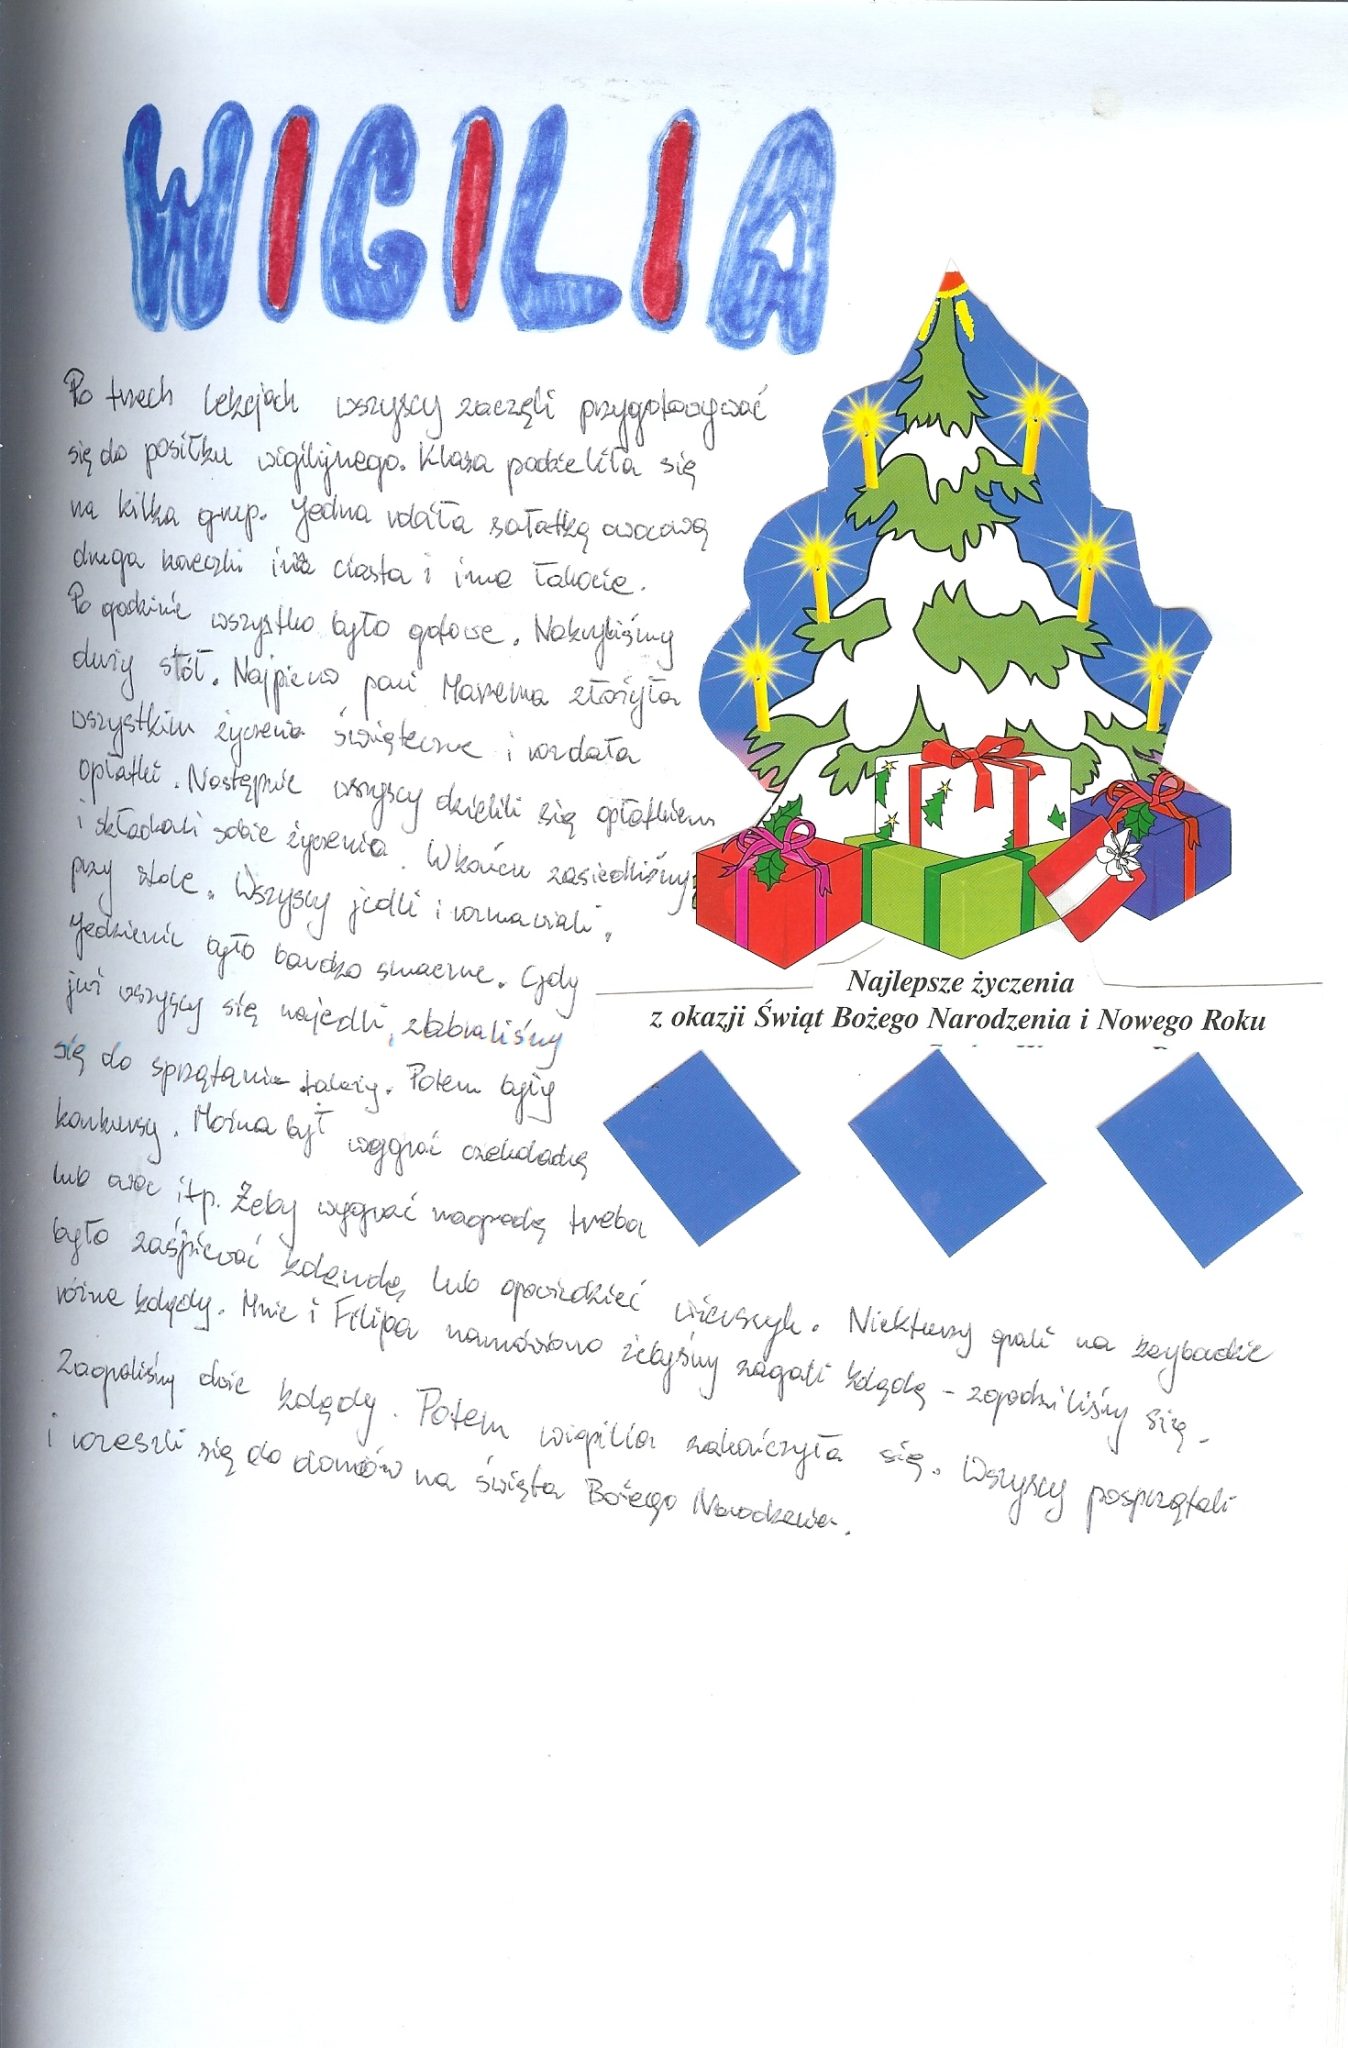 WIGILIA
Po trzech lekcjach wszyscy zaczęli przygotowywać
się do posiłku wigilijnego. Klasa podzieliła się
na kilka grup. Jedna robiła sałatkę owocową
druga koreczki inna ciasta i inne łakocie.
Po godzinie wszystko było gotowe. Nakryliśmy
duży stół. Najpierw pani Marzena złożyła
wszystkim życzenia świąteczne i rozdała
opłatki. Następnie wszyscy dzielili się opłatkiem
i składali sobie życzenia. W końcu zasiedliśmy
przy stole. Wszyscy jedli i rozmawiali.
Jedzienie było bardzo smaczne. Gdy
już wszyscy się najedli, zabraliśmy
się do sprzątania talerzy. Potem były
konkursy. Można był wygrać czekoladkę
lub owoc itp. Żeby wygrać nagrodę trzeba
było zaśpiewać kolendę, lub opowiedzieć wierszyk. Niekturzy grali na keybadzie
różne kolędy. Mnie i Filipa namówiono żebyśmy zagali kolędę - zgodziliśmy się.
Zagraliśmy dwie kolędy. Potem wigilia zakończyła się. Wszyscy posprzątali
i rozeszli się do domów na święta Bożego Narodzenia.
Najlepsze życzenia
z okazji Świąt Bożego Narodzenia i Nowego Roku